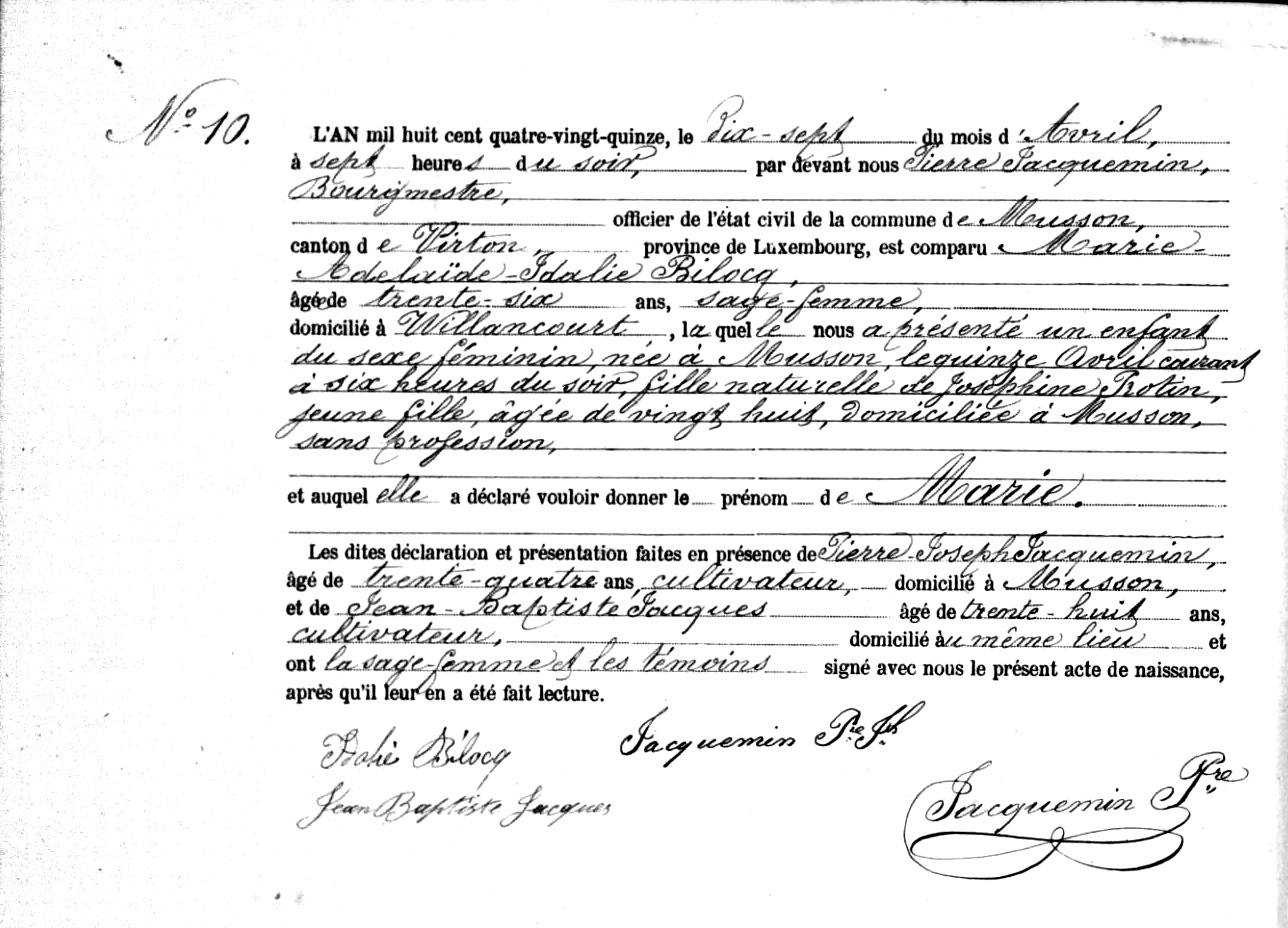 N° 10.
L'AN mil huit cent quatre-vingt-quinze, le Dix-sept du mois d'Avril,
à sept heures du soir, par devant nous Pierre Jacquemin,
Bourgmestre,
officier de l'état civil de la commune de Musson,
canton de Virton, province de Luxembourg, est comparu Marie-
Adelaïde-Idalie Bilocq,
âgée de trente-six ans, sage-femme,
domicilié à Willancourt, laquelle nous a présenté un enfant
du sexe féminin, née à Musson, le quinze Avril courant
à six heures du soir, fille naturelle de Joséphine Rotin,
jeune fille, âgée de vingt huit, domiciliée à Musson,
sans profession,
et auquel elle a déclaré vouloir donner le prénom de Marie.
Les dites déclaration et présentation faites en présence de Pierre-Joseph Jacquemin,
âgé de trente-quatre ans, cultivateur, domicilié à Musson,
et de Jean-Baptiste Jacques âgé de trente-huit ans,
cultivateur, domicilié au même lieu et
ont la sage-femme et les témoins signé avec nous le présent acte de naissance,
après qu'il leur en a été fait lecture.
Idalie Bilocq Jacquemin Pre Jh
Jean Baptiste Jacques Jacquemin Pre